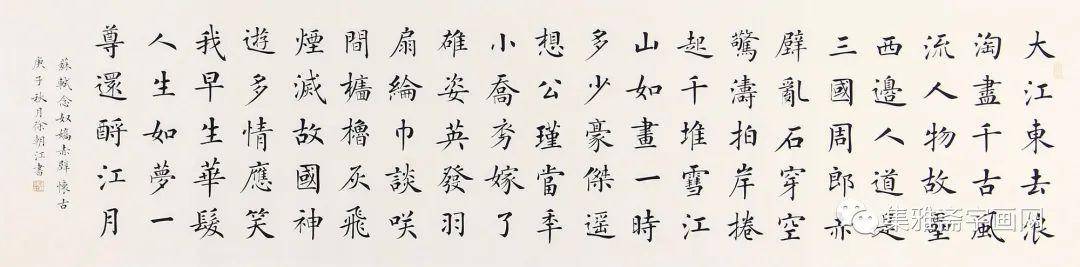 大江東去浪
淘盡千古風
流人物故壘
西邊人道是
三國周郎赤
壁亂石穿空
驚濤拍岸捲
起千堆雪江
山如畫一時
多少豪傑遥
想公瑾當年
小喬初嫁了
雄姿英發羽
扇綸巾談咲
間檣櫓灰飛
煙滅故國神
遊多情應笑
我早生華髮
人生如夢一
尊還酹江月
蘇軾念奴嬌赤壁懷古
庚子秋月徐朝江書
集雅斋字画网